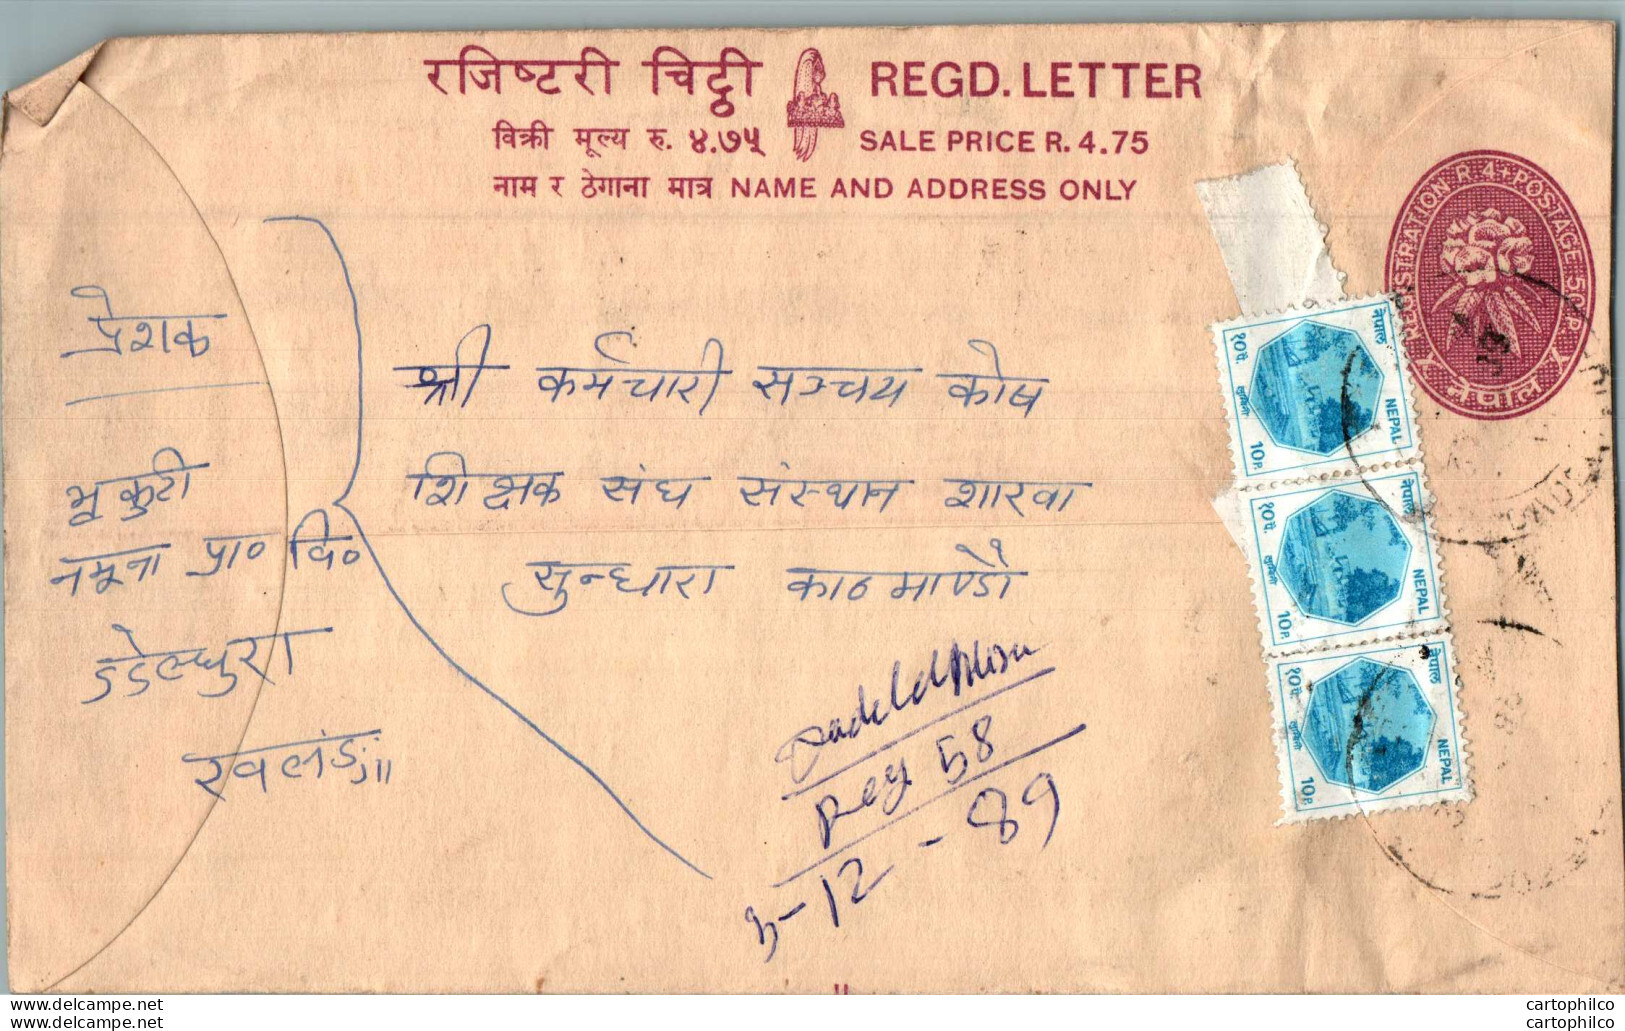 रजिष्टरी चिट्ठी REGD. LETTER
विक्री मूल्य रु. ४.७५ SALE PRICE R. 4.75
नाम र ठेगाना मात्र NAME AND ADDRESS ONLY
REGISTRATION R.4+POSTAGE 50P.
नेपाल
प्रेशक
भृकुटी
नमूना प्रा० वि०
डडेल्धुरा
खलंङ्गा।।
श्री कर्मचारी सञ्चय कोष
शिक्षक संघ संस्थान शाखा
सुन्धारा काठमाण्डौ
Reg 58
3-12-89
नेपाल
१०पै.
लुम्बिनी
NEPAL
10P.
नेपाल
१०पै.
लुम्बिनी
NEPAL
10P.
नेपाल
१०पै.
लुम्बिनी
NEPAL
10P.
www.delcampe.net
www.delcampe.net
cartophilco
cartophilco